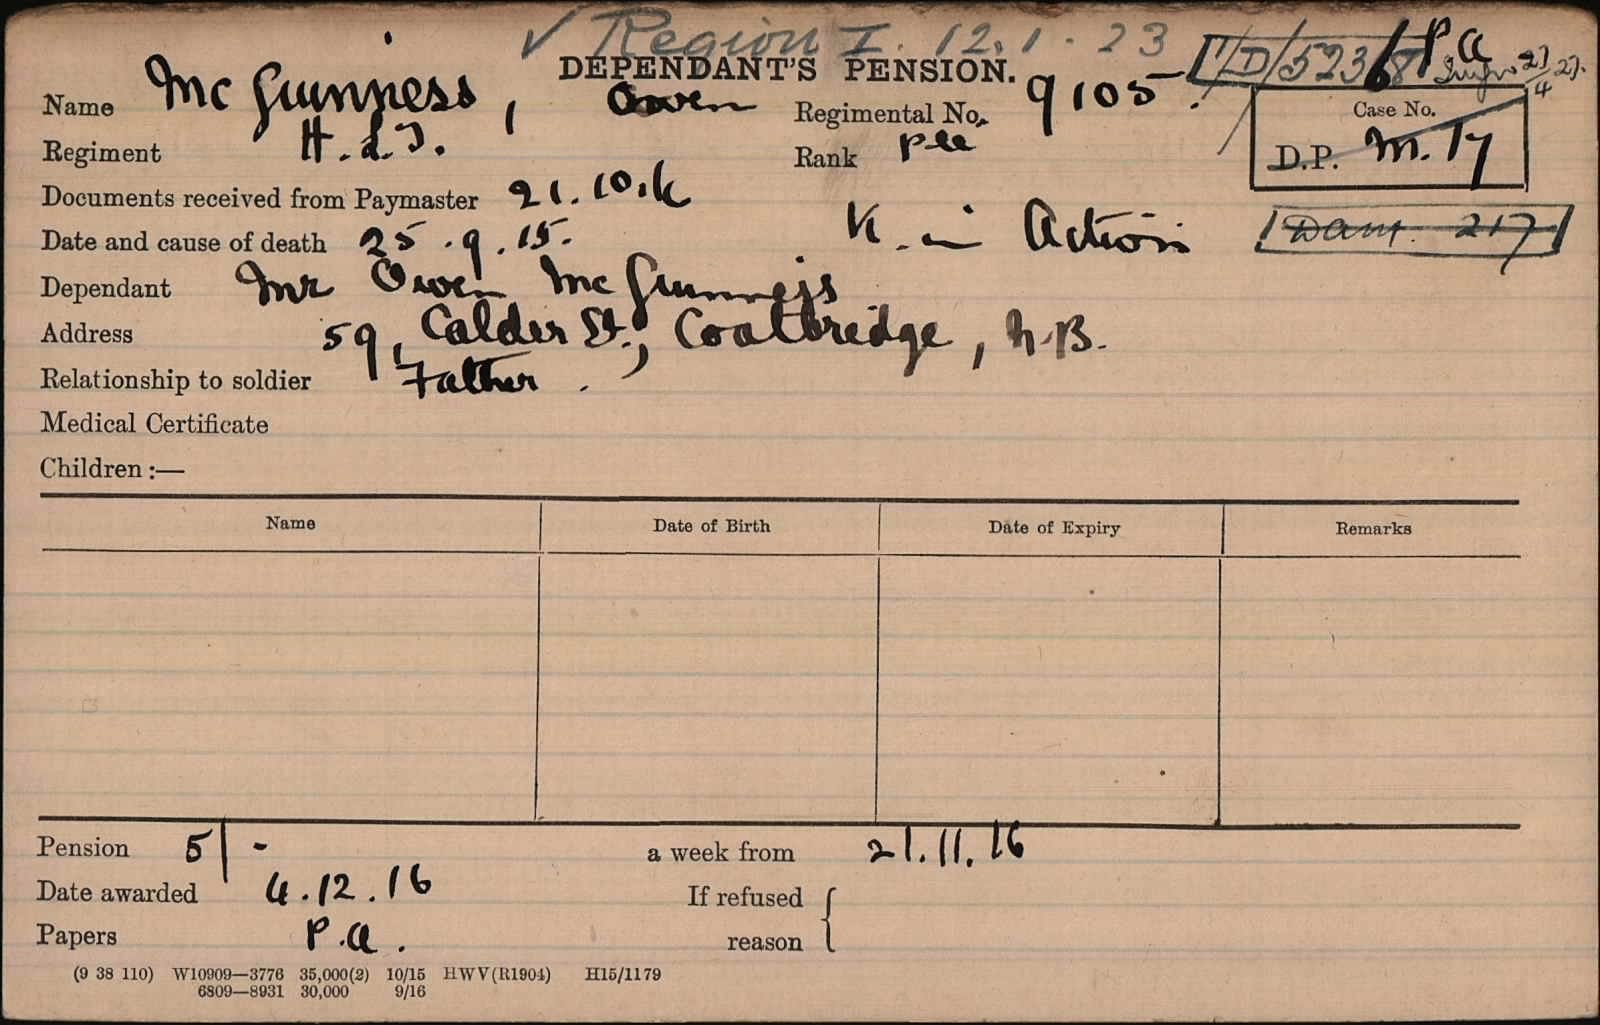 ✓ Region I. 12.1.23
1/D/5236/8 P.A
27/4/27.
DEPENDANT'S PENSION.
Name McGuinness, Owen Regimental No. 9105. Case No.
Regiment H.L.I. Rank Pte D.P. M.17
Documents received from Paymaster 21.10.16
Date and cause of death 25.9.15. K. in Action 1/DAM. 217/
Dependant Mr Owen McGuinness
Address 59, Calder St., Coatbridge, N.B.
Relationship to soldier Father.
Medical Certificate
Children :—
Name Date of Birth Date of Expiry Remarks
Pension 5/- a week from 21.11.16
Date awarded 4.12.16 If refused
Papers P.A. reason
(9 38 110) W10909—3776 35,000(2) 10/15 HWV(R1904) H15/1179
6809—8931 30,000 9/16